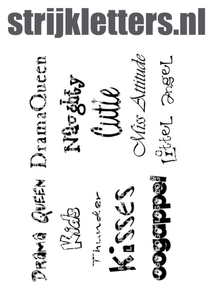 strijkletters.nl
DramaQueen
Naughty
Cutie
Miss Attitude
Littel angel
DRAMA QUEEN
Kids
Thunder
Kisses
oogappel